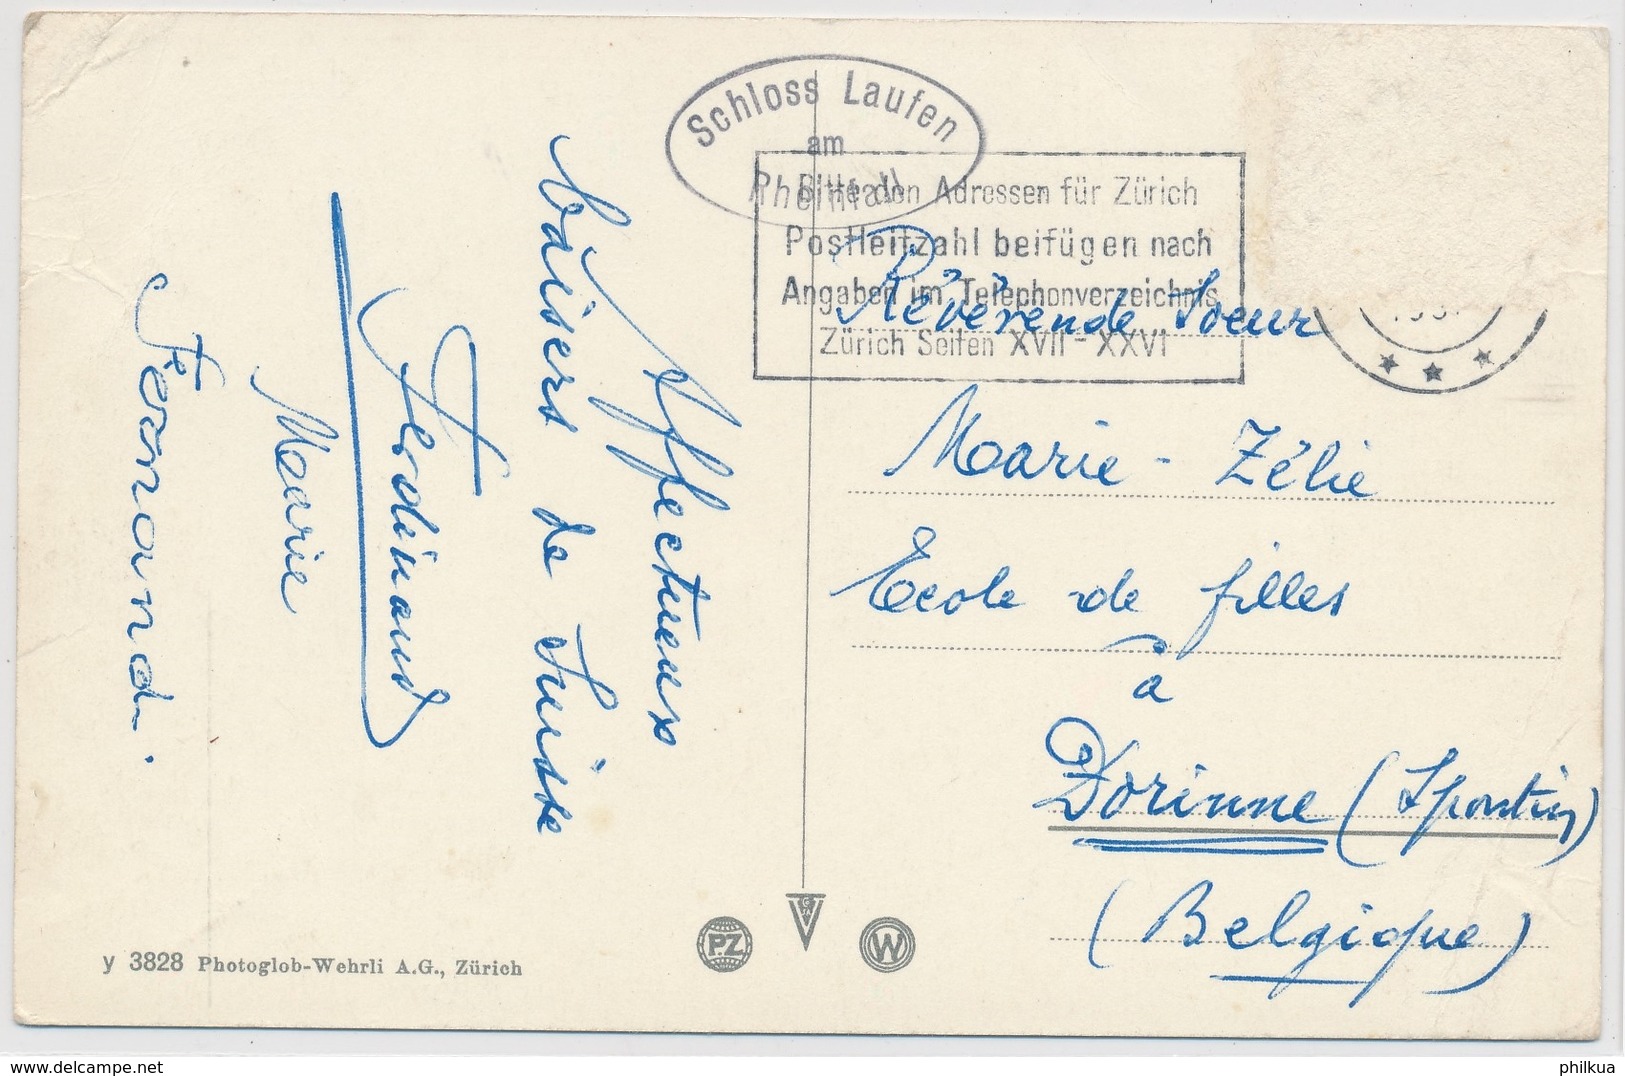 Affectueux
baisers de Suisse
Ferdinand
Marie
Fernand.
Schloss Laufen
am
Rheinfall
Bitte den Adressen für Zürich
Postleitzahl beifügen nach
Angaben im Telephonverzeichnis
Zürich Seiten XVII - XXVI
Révérende Soeur
Marie - Zélie
Ecole de filles
à
Dorinne (Spontin)
(Belgique)
P.Z.
W
y 3828 Photoglob-Wehrli A.G., Zürich
philkua
delcampe.net